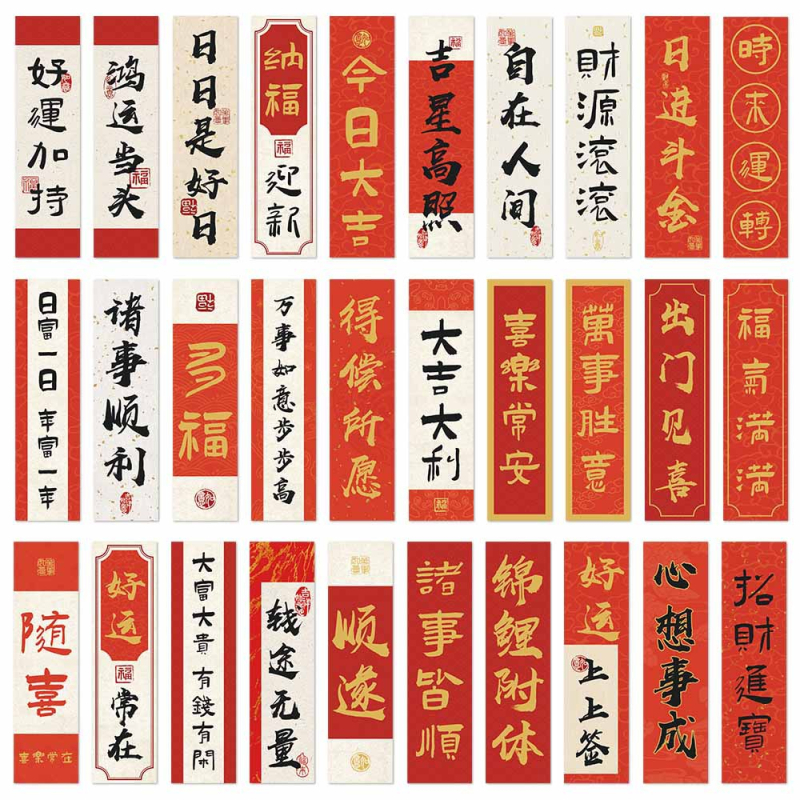 好運加持
鸿运当头
日日是好日
纳福
福
迎新
今日大吉
福
吉星高照
自在人间
財源滾滾
日进斗金
時来運轉
日富一日 年富一年
诸事顺利
多福
万事如意步步高
得偿所愿
大吉大利
喜樂常安
萬事胜意
出门见喜
福氣满满
随喜
喜樂常在
好运
福
常在
大富大貴 有錢有閑
钱途无量
顺遂
諸事皆順
锦鲤附体
好运
上上签
心想事成
招財進寶